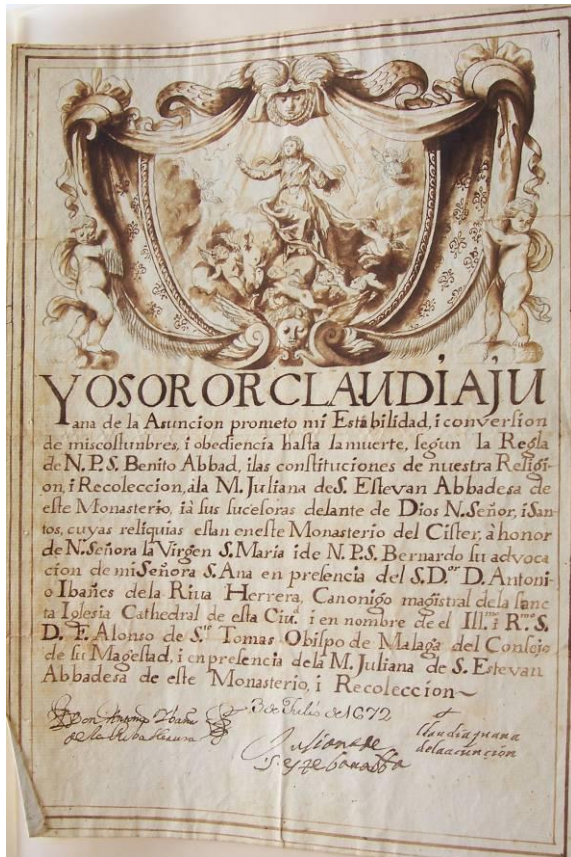 YO SOROR CLAUDIA JU
ana de la Asuncion prometo mi Estabilidad, i conversion
de mis costunbres, i obediencia hasta la muerte, segun la Regla
de N. P. S. Benito Abbad, i las constituciones de nuestra Religi-
on, i Recoleccion, à la M. Juliana de S. Estevan Abbadesa de
este Monasterio, i à sus sucesoras delante de Dios N. Señor, i San-
tos, cuyas reliquias estan en este Monasterio del Cister, à honor
de N. Señora la Virgen S. Maria i de N. P. S. Bernardo su advoca
cion de mi Señora S. Ana en presencia del S. D.or D. Antoni-
o Ibañes de la Riva Herrera, Canonigo magistral de la sanc
ta Iglesia Cathedral de esta Ciu.d i en nombre de el Ill.mo i R.mo S.
D. F. Alonso de S.to Tomas Obispo de Malaga del Consejo
de su Magestad, i en presencia de la M. Juliana de S. Estevan
Abbadesa de este Monasterio, i Recoleccion~
3 de Julio de 1672
Don Antonio Ybañes
de la Riba Herrera
Juliana de
S. Esteban
Claudia juana
de la acuncion